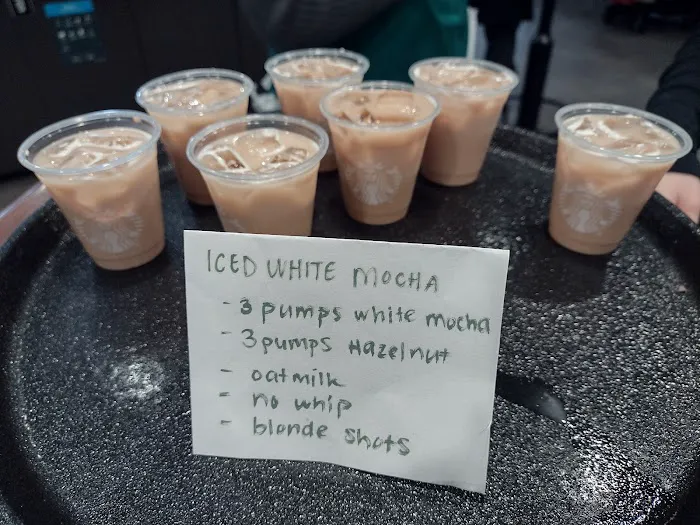 ICED WHITE MOCHA
- 3 pumps white mocha
- 3 pumps Hazelnut
- oatmilk
- no whip
- blonde shots